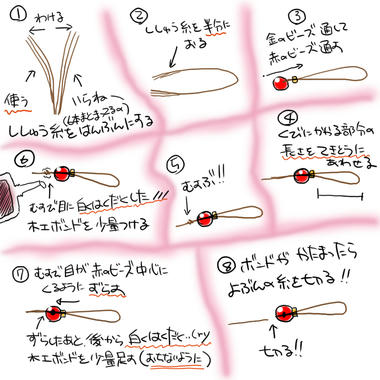 ①
わける
使う
いらねー
(6本まとまってるの)
ししゅう糸をはんぶんにする
②
ししゅう糸を半分に
おる
③
金のビーズ通して
赤のビーズ通す
④
くびにかかる部分の
長さをてきとうに
あわせる
⑤
むすぶ!!
⑥
むすび目に白くはくだくした!!!
木工ボンドを少量つける
⑦
むすび目が赤のビーズ中心に
くるようにずらす
ずらしたあと、後から白くはくだく…(ry
木工ボンドを少量足す(おちないように)
⑧ボンドが かたまったら
よぶんの糸を切る!!
切る!!